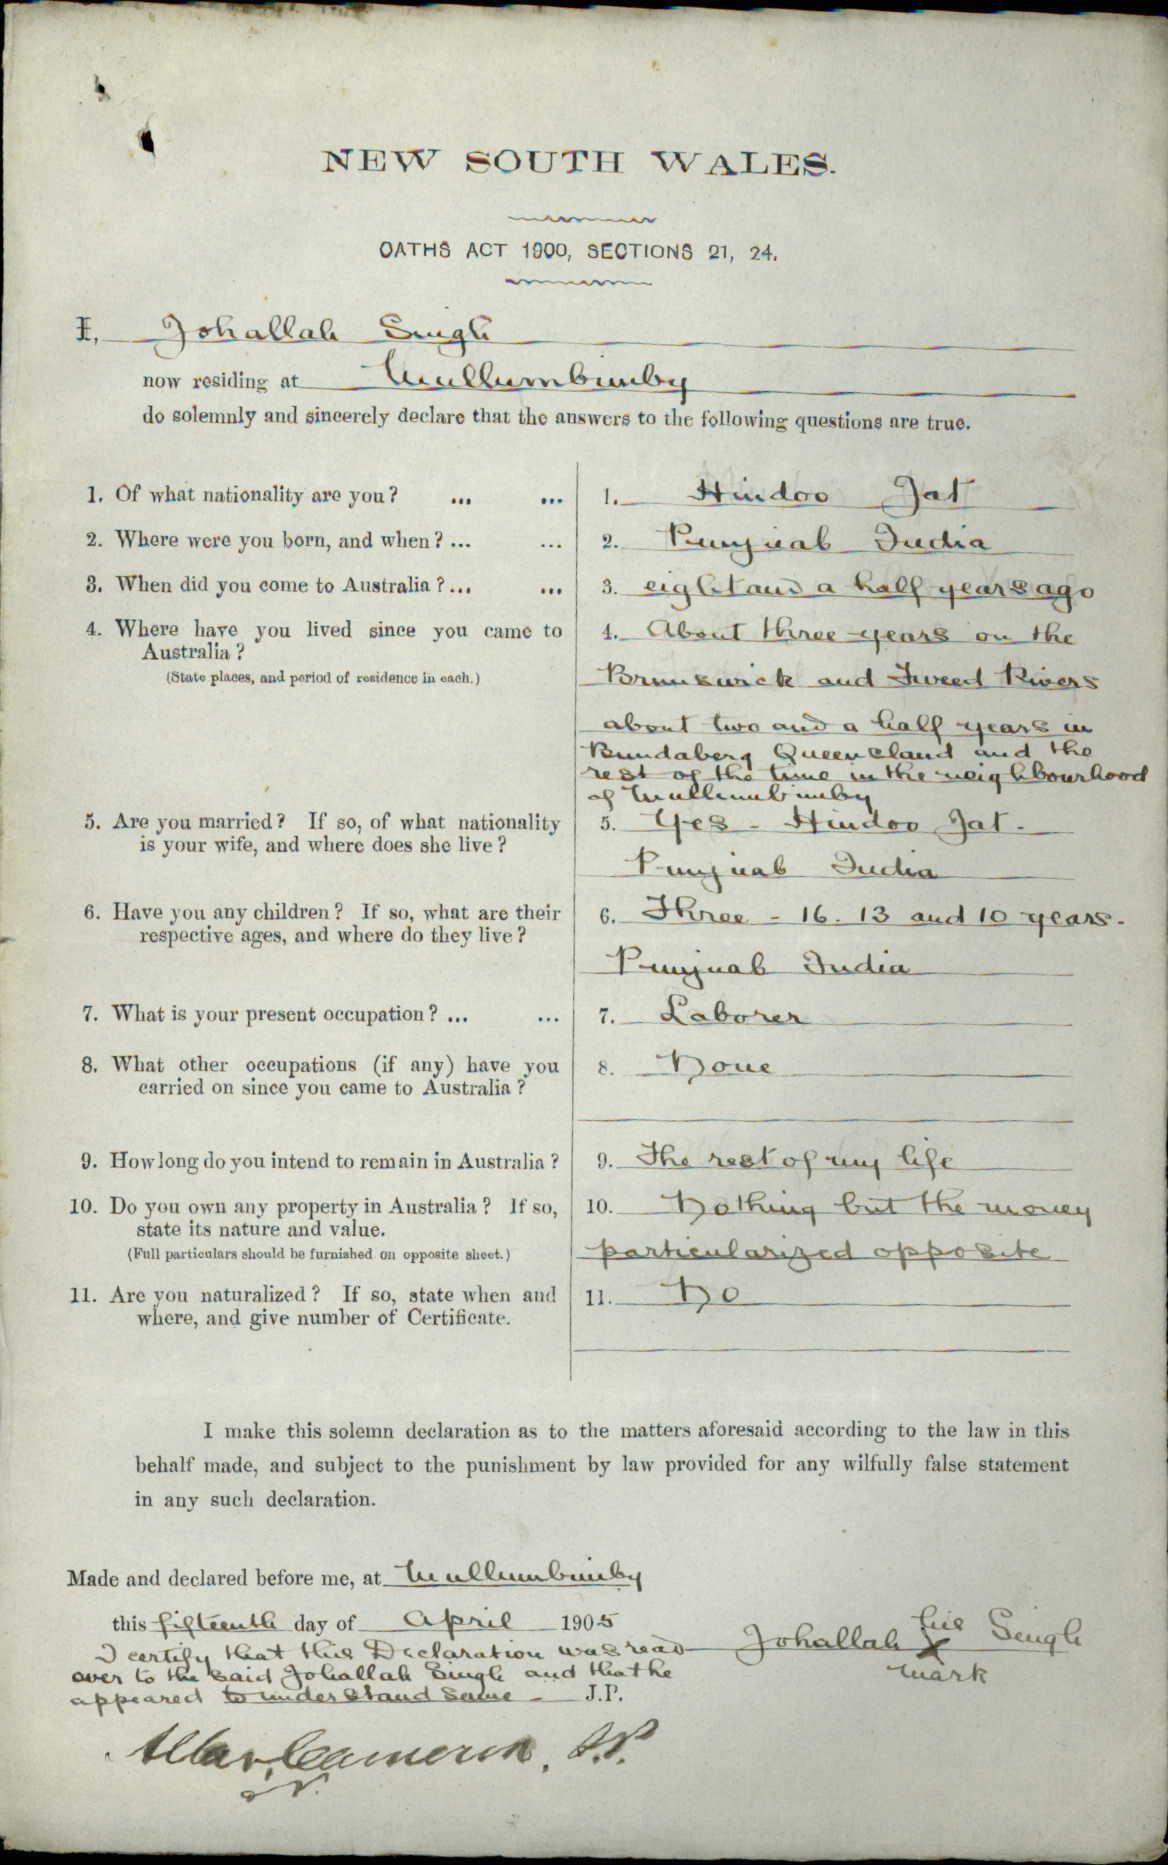 NEW SOUTH WALES.
OATHS ACT 1900, SECTIONS 21, 24.
I, Johallah Singh
now residing at Mullumbimby
do solemnly and sincerely declare that the answers to the following questions are true.
1. Of what nationality are you? ... ... 1. Hindoo Jat
2. Where were you born, and when? ... ... 2. Punjuab India
3. When did you come to Australia? ... ... 3. eight and a half years ago
4. Where have you lived since you came to 4. About three years on the
Australia?
(State places, and period of residence in each.) Brunswick and Tweed Rivers
about two and a half years in
Bundaberg Queensland and the
rest of the time in the neighbourhood
of Mullumbimby
5. Are you married? If so, of what nationality 5. Yes - Hindoo Jat -
is your wife, and where does she live?
Punjuab India
6. Have you any children? If so, what are their 6. Three - 16. 13 and 10 years -
respective ages, and where do they live?
Punjuab India
7. What is your present occupation? ... ... 7. Laborer
8. What other occupations (if any) have you 8. None
carried on since you came to Australia?
9. How long do you intend to remain in Australia? 9. The rest of my life
10. Do you own any property in Australia? If so, 10. Nothing but the money
state its nature and value.
(Full particulars should be furnished on opposite sheet.) particularized opposite
11. Are you naturalized? If so, state when and 11. No
where, and give number of Certificate.
I make this solemn declaration as to the matters aforesaid according to the law in this
behalf made, and subject to the punishment by law provided for any wilfully false statement
in any such declaration.
Made and declared before me, at Mullumbimby
this fifteenth day of April 1905
Johallah his X mark Singh
I certify that this Declaration was read
over to the said Johallah Singh and that he
appeared to understand same - J.P.
Allan Cameron, J.P.